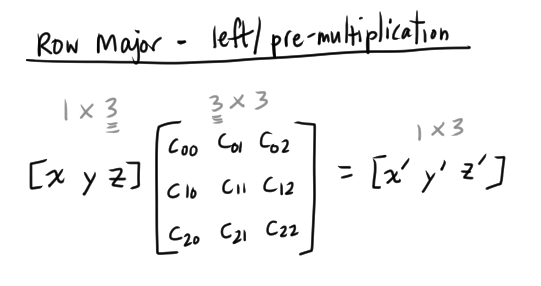 Row Major - left/pre-multiplication
1 x 3 3 x 3 1 x 3
[x y z] [C00 C01 C02
C10 C11 C12
C20 C21 C22] = [x' y' z']